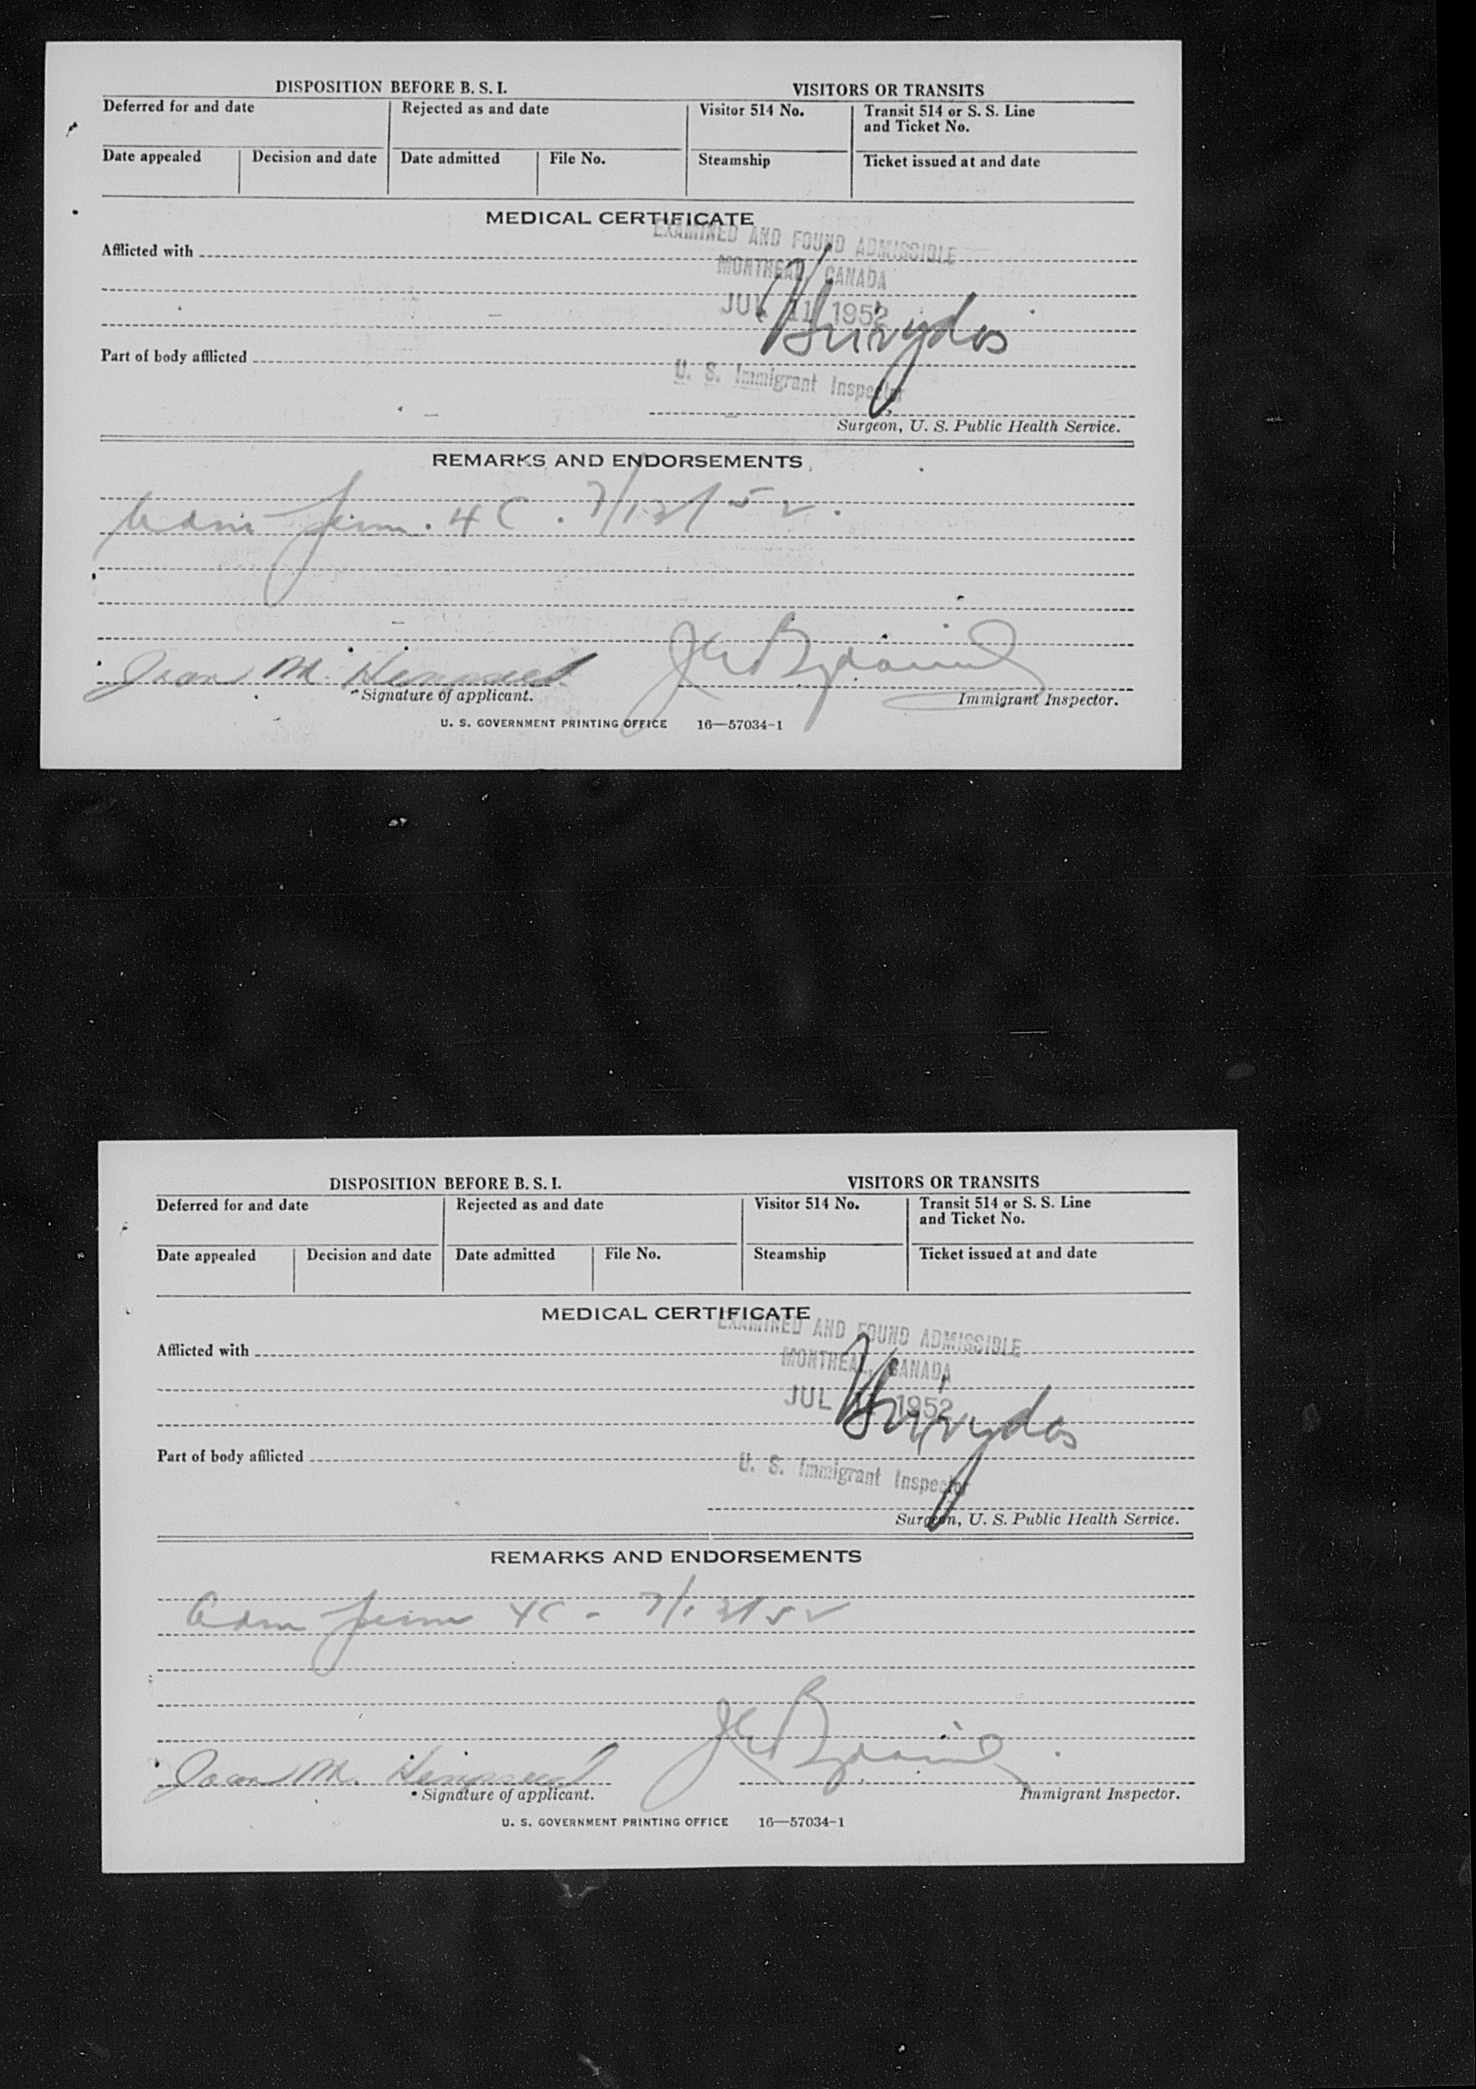 DISPOSITION BEFORE B. S. I.
VISITORS OR TRANSITS
Deferred for and date
Rejected as and date
Visitor 514 No.
Transit 514 or S. S. Line
and Ticket No.
Date appealed
Decision and date
Date admitted
File No.
Steamship
Ticket issued at and date
MEDICAL CERTIFICATE
EXAMINED AND FOUND ADMISSIBLE
Afflicted with
MONTREAL, CANADA
JUL 11 1952
Part of body afflicted
U. S. Immigrant Inspector
Surgeon, U. S. Public Health Service.
REMARKS AND ENDORSEMENTS
Adm perm. 4C. 7/12/52.
Joan M.
Signature of applicant.
Immigrant Inspector.
U. S. GOVERNMENT PRINTING OFFICE 16—57034-1
DISPOSITION BEFORE B. S. I.
VISITORS OR TRANSITS
Deferred for and date
Rejected as and date
Visitor 514 No.
Transit 514 or S. S. Line
and Ticket No.
Date appealed
Decision and date
Date admitted
File No.
Steamship
Ticket issued at and date
MEDICAL CERTIFICATE
EXAMINED AND FOUND ADMISSIBLE
Afflicted with
MONTREAL, CANADA
JUL 11 1952
Part of body afflicted
U. S. Immigrant Inspector
Surgeon, U. S. Public Health Service.
REMARKS AND ENDORSEMENTS
Adm perm 4C - 7/12/52
Joan M.
Signature of applicant.
Immigrant Inspector.
U. S. GOVERNMENT PRINTING OFFICE 16—57034-1